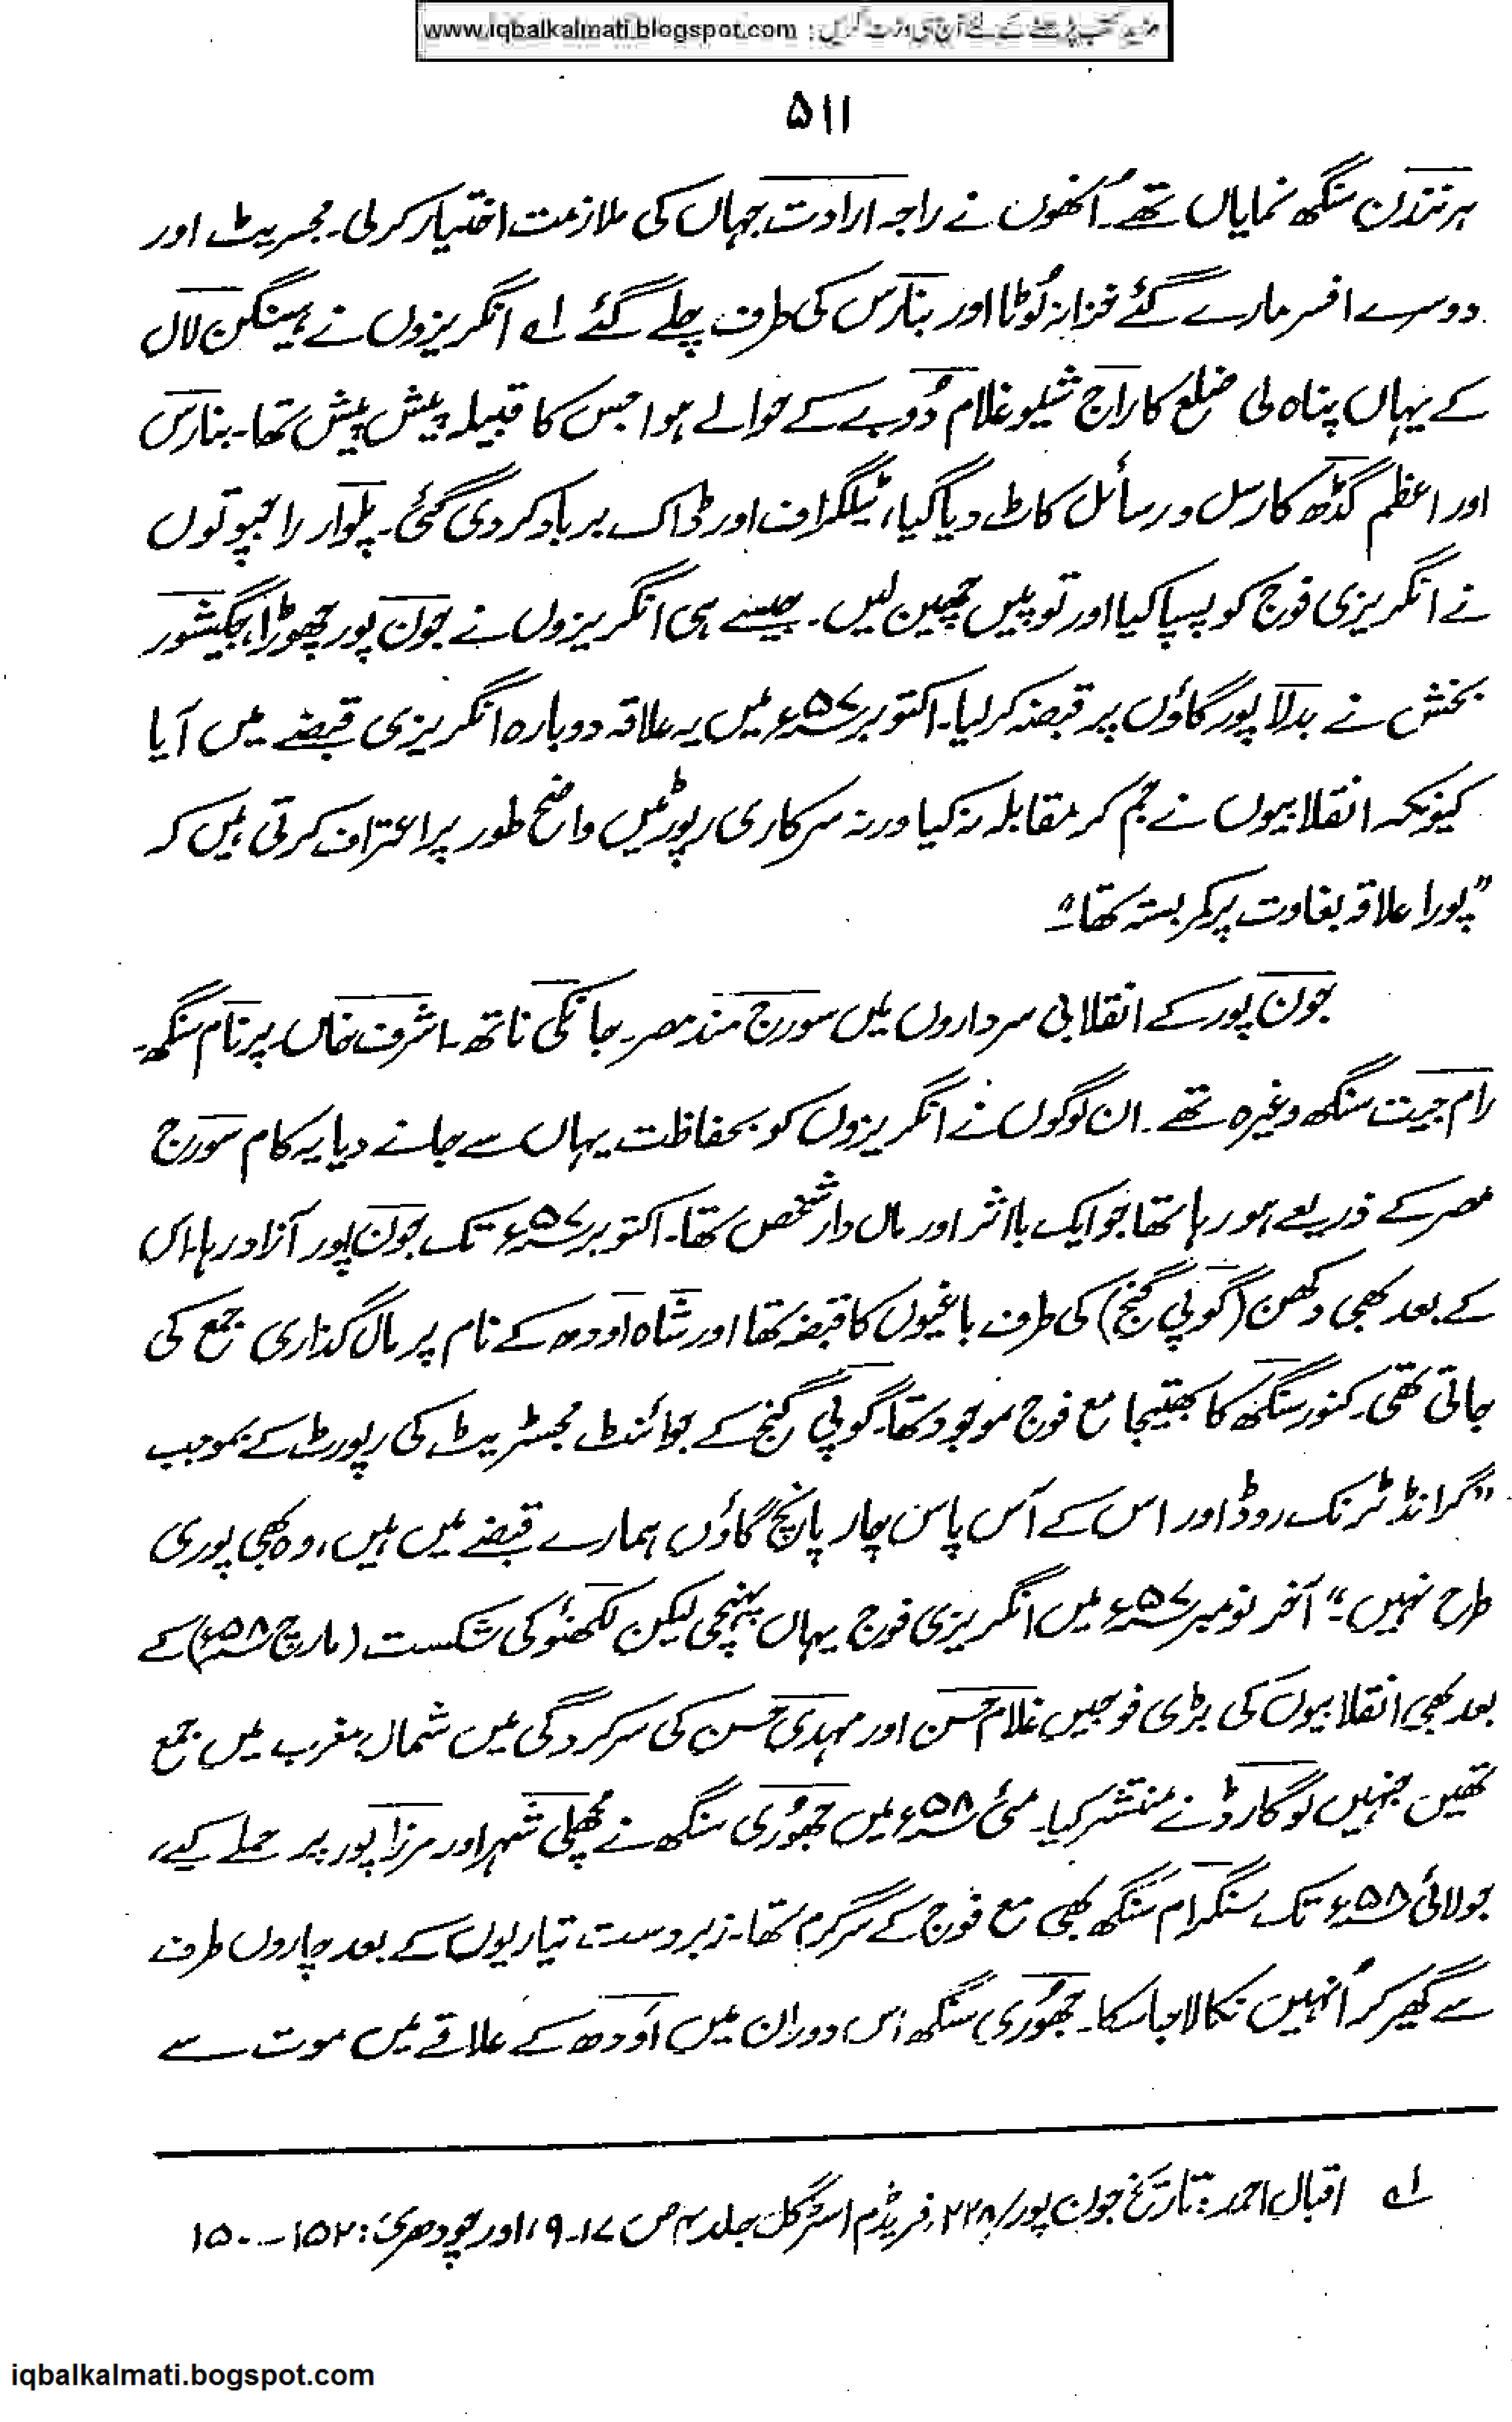 مزید کتب پڑھنے کے لئے آج ہی وزٹ کریں : www.iqbalkalmati.blogspot.com
۵۱۱
ہرنندن سنگھ نمایاں تھے۔ اُنھوں نے راجہ ارادت جہاں کی ملازمت اختیار کرلی۔ مجسٹریٹ اور
دوسرے افسر مارے گئے خزانہ لُوٹا اور بنارس کی طرف چلے گئے لے انگریزوں نے ہینگن لال
کے یہاں پناہ لی ضلع کا راج شیلو غلام دُوبے کے حوالے ہوا جس کا قبیلہ پیش پیش تھا۔ بنارس
اور اعظم گڈھ کا رسل و رسائل کاٹ دیا گیا، ٹیلگراف اور ڈاک برباد کر دی گئی۔ پلوار راجپوتوں
نے انگریزی فوج کو پسپا کیا اور توپیں چھین لیں۔ جیسے ہی انگریزوں نے جون پور چھوڑا، جگیشور
بخش نے بدلا پور گاؤں پر قبضہ کرلیا۔ اکتوبر ۵۷ء میں یہ علاقہ دوبارہ انگریزی قبضے میں آیا
کیونکہ انقلابیوں نے جم کر مقابلہ نہ کیا ورنہ سرکاری رپورٹیں واضح طور پر اعتراف کرتی ہیں کہ
”پورا علاقہ بغاوت پر کمر بستہ تھا“۔
جون پور کے انقلابی سرداروں میں سورج مندمصر۔ جانکی ناتھ۔ اشرف خاں۔ پرنام سنگھ۔
رام جیت سنگھ وغیرہ تھے۔ ان لوگوں نے انگریزوں کو بحفاظت یہاں سے جانے دیا یہ کام سورج
مصر کے ذریعے ہو رہا تھا جو ایک بااثر اور مال دار شخص تھا۔ اکتوبر ۵۷ء تک جون پور آزاد رہا۔ اس
کے بعد بھی دکھن (گوپی گنج) کی طرف باغیوں کا قبضہ تھا اور شاہ اودھ کے نام پر مال گذاری جمع کی
جاتی تھی۔ کنور سنگھ کا بھتیجا مع فوج موجود تھا۔ گوپی گنج کے جوائنٹ مجسٹریٹ کی رپورٹ کے بموجب
”گرانڈ ٹرنک روڈ اور اس کے آس پاس چار پانچ گاؤں ہمارے قبضے میں ہیں، وہ بھی پوری
طرح نہیں۔“ آخر نومبر ۵۷ء میں انگریزی فوج یہاں پہنچی لیکن لکھنؤ کی شکست (مارچ ۵۸ء) کے
بعد بھی انقلابیوں کی بڑی فوجیں غلام حسن اور مہدی حسن کی سرکردگی میں شمال مغرب میں جمع
تھیں جنہیں لوگارڈ نے منتشر کیا۔ مئی ۵۸ء میں جھوُری سنگھ نے مچھلی شہر اور مرزا پور پر حملے کیے،
جولائی ۵۸ء تک سنگرام سنگھ بھی مع فوج کے سرگرم تھا۔ زبردست تیاریوں کے بعد چاروں طرف
سے گھیر کر اُنہیں نکالا جاسکا۔ جھوُری سنگھ اس دوران میں اَودھ کے علاقے میں موت سے
لے اقبال احمد: تاریخ جون پور/۲۲۸، فریڈم اسٹرگل جلد ۴ ص ۱۷۔۹، اور چودھری: ۱۵۲۔۱۵۰
iqbalkalmati.bogspot.com